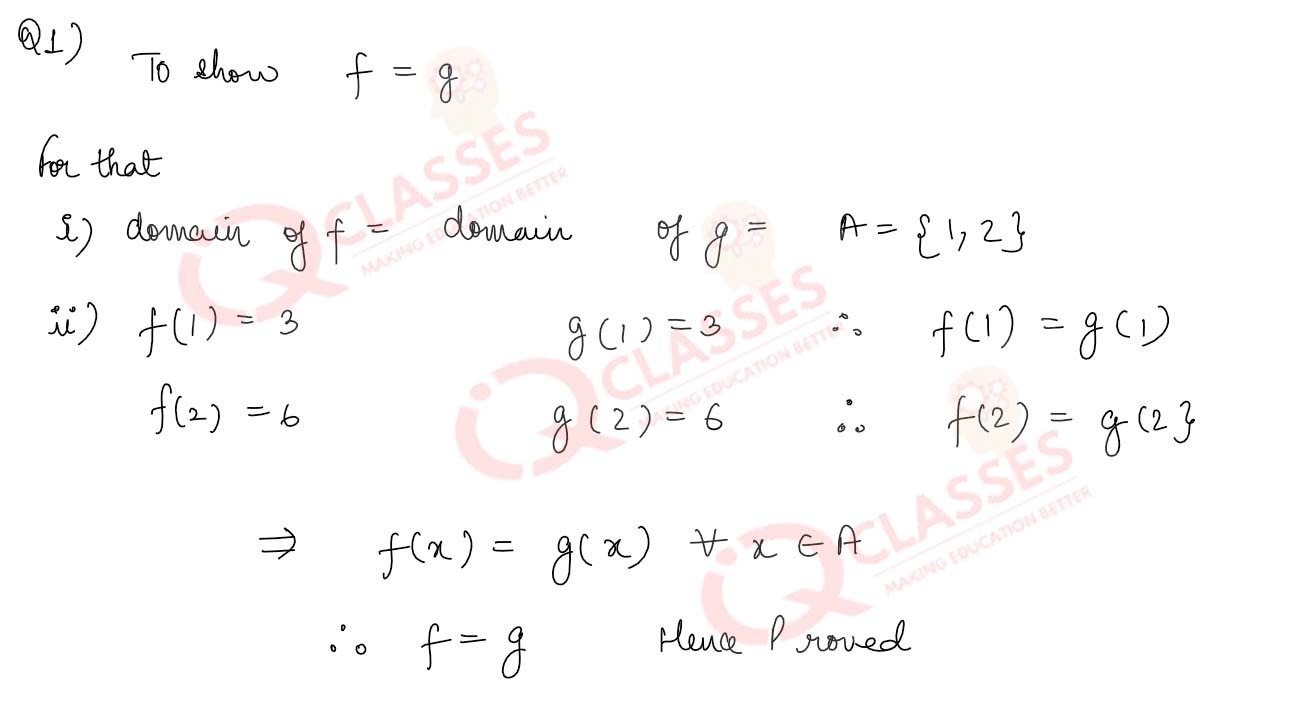 Q1)
To show f = g
for that
i) domain of f = domain of g = A = {1, 2}
ii) f(1) = 3 g(1) = 3 ∴ f(1) = g(1)
f(2) = 6 g(2) = 6 ∴ f(2) = g(2}
⇒ f(x) = g(x) ∀ x ∈ A
∴ f = g Hence Proved
iQ CLASSES
MAKING EDUCATION BETTER
iQ CLASSES
MAKING EDUCATION BETTER
iQ CLASSES
MAKING EDUCATION BETTER